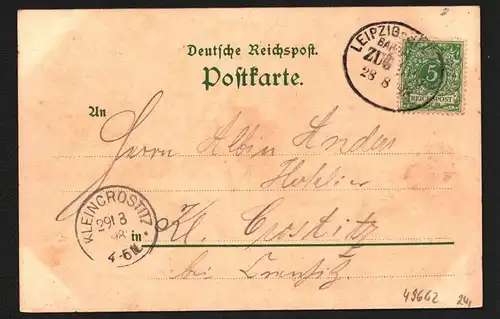 Deutsche Reichspost.
Postkarte.
LEIPZIG
ZUG
28 8
5
REICHSPOST
An
Herrn Albin Anders
KLEINCROSTITZ
29 8
98
4-6N.
in Kl. Crostitz
bei
49662 24,